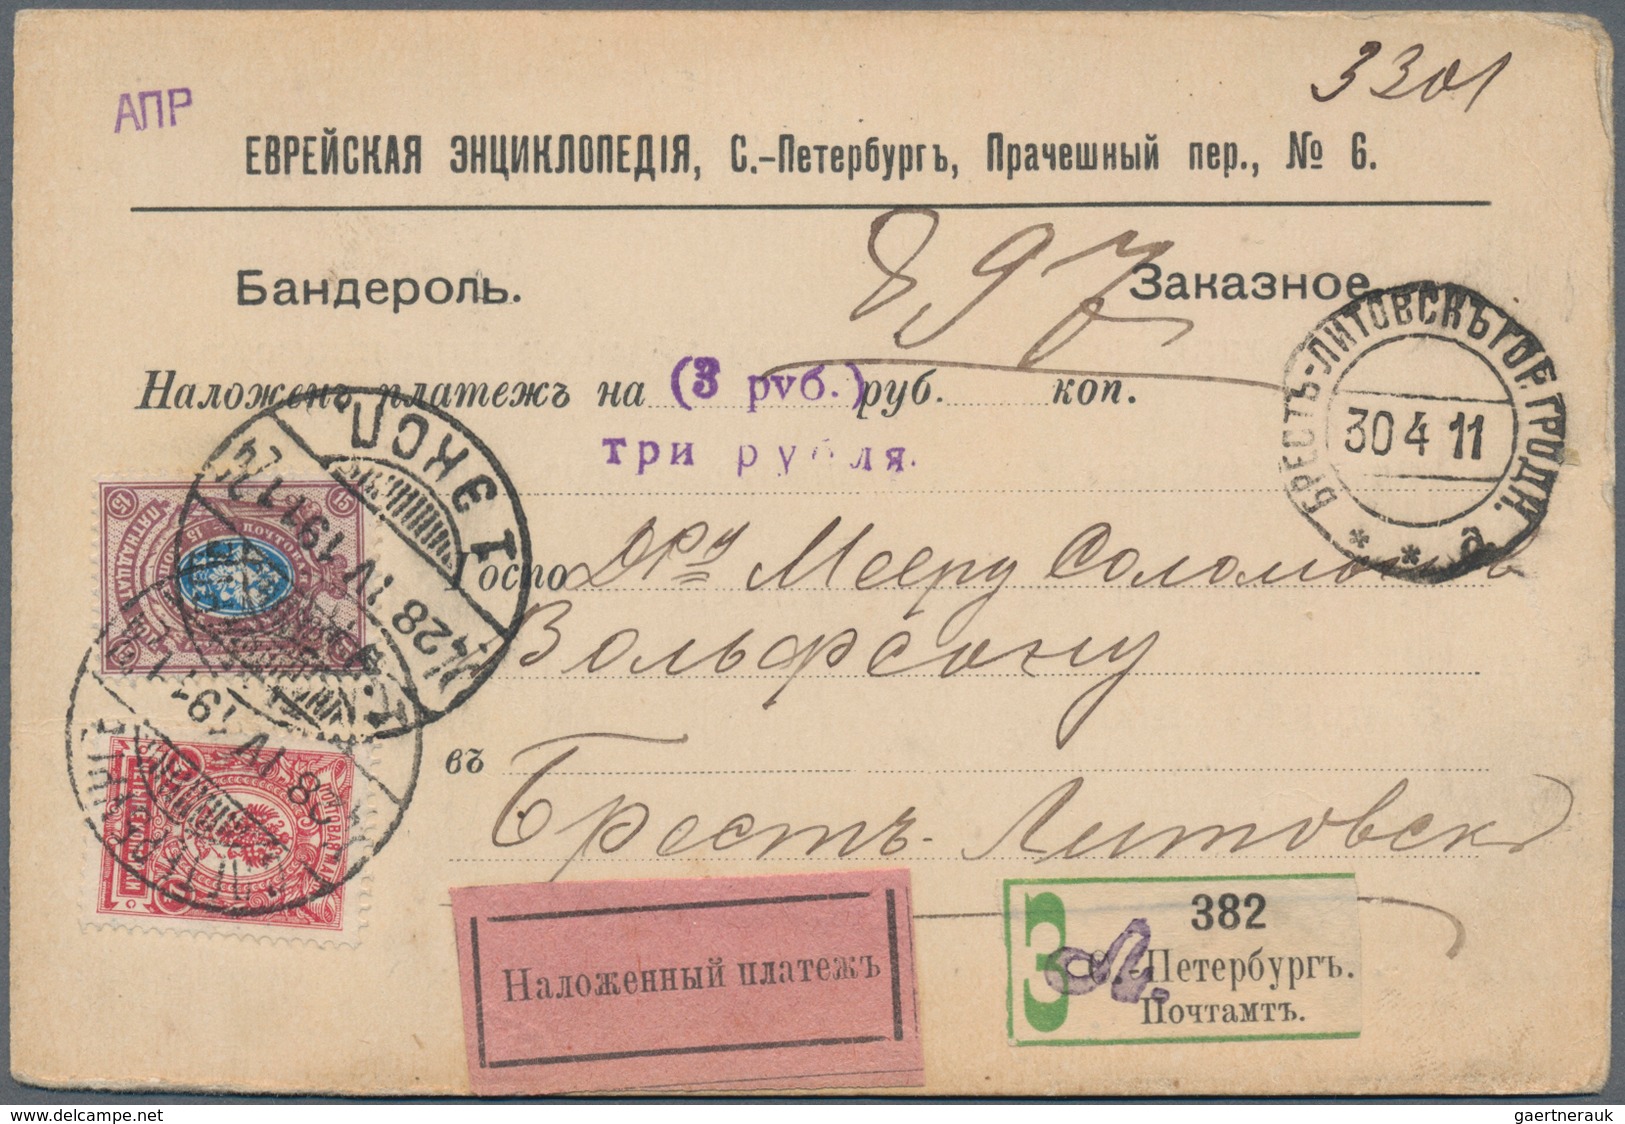 3301
АПР
ЕВРЕЙСКАЯ ЭНЦИКЛОПЕДІЯ, С.-Петербургъ, Прачешный пер., № 6.
897
Бандероль. Заказное
Наложенъ платежъ на (3 руб.) руб. коп.
три рубля.
БРЕСТЬ-ЛИТОВСКЪ ГОР. ГРОДН.
30 4 11
* * а
1 ЭКСП
428 IV 1911
15 15
Госпо Дру Мееру Соломон
Вольфсону
въ
Брестъ-Литовскъ
28 IV 1911
Наложенный платежъ
З
382
С.-Петербургъ.
Почтамтъ.
gaertnerauk / delcampe.net